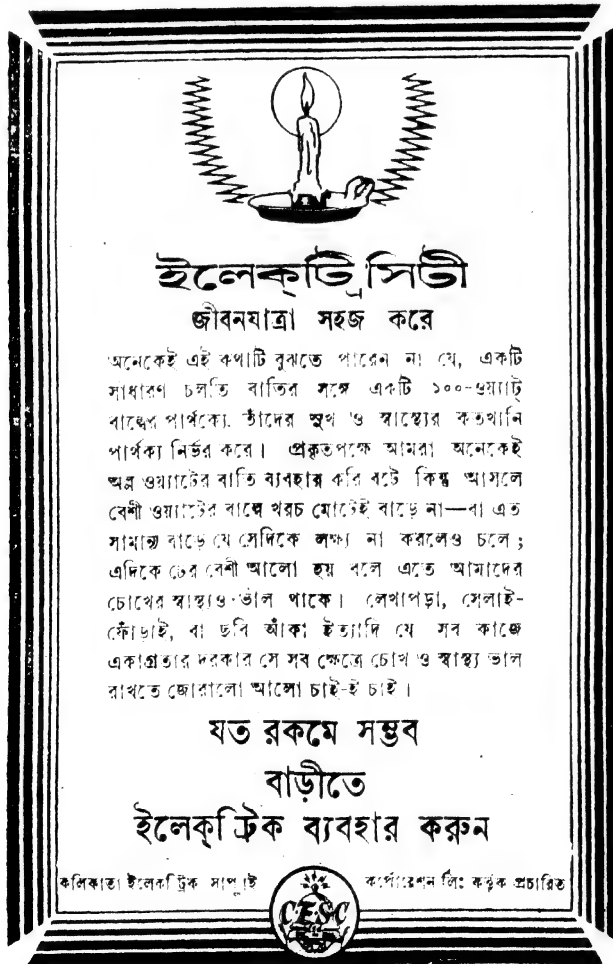 ইলেক্‌ট্রিসিটী
জীবনযাত্রা সহজ করে
অনেকেই এই কথাটি বুঝতে পারেন না যে, একটি
সাধারণ চলতি বাতির সঙ্গে একটি ১০০-ওয়্যাট্
বাল্বের পার্থক্যে, তাঁদের সুখ ও স্বাস্থ্যের কতখানি
পার্থক্য নির্ভর করে। প্রকৃতপক্ষে আমরা অনেকেই
অল্প ওয়্যাটের বাতি ব্যবহার করি বটে কিন্তু আসলে
বেশী ওয়্যাটের বাল্বে খরচ মোটেই বাড়ে না—বা এত
সামান্য বাড়ে যে সেদিকে লক্ষ্য না করলেও চলে;
এদিকে ঢের বেশী আলো হয় বলে এতে আমাদের
চোখের স্বাস্থ্যও ভাল থাকে। লেখাপড়া, সেলাই-
ফোঁড়াই, বা ছবি আঁকা ইত্যাদি যে সব কাজে
একাগ্রতার দরকার সে সব ক্ষেত্রে চোখ ও স্বাস্থ্য ভাল
রাখতে জোরালো আলো চাই-ই চাই।
যত রকমে সম্ভব
বাড়ীতে
ইলেক্‌ট্রিক ব্যবহার করুন
কলিকাতা ইলেকট্রিক সাপ্লাই কর্পোরেশন লিঃ কর্তৃক প্রচারিত
CESC